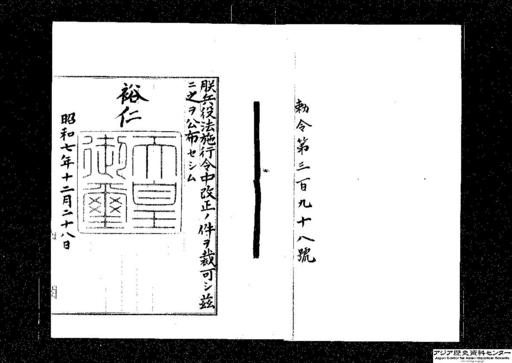 勅令第三百九十八號
朕兵役法施行令中改正ノ件ヲ裁可シ茲
ニ之ヲ公布セシム
裕仁
天皇
御璽
昭和七年十二月二十八日
アジア歴史資料センター
Japan Center for Asian Historical Records